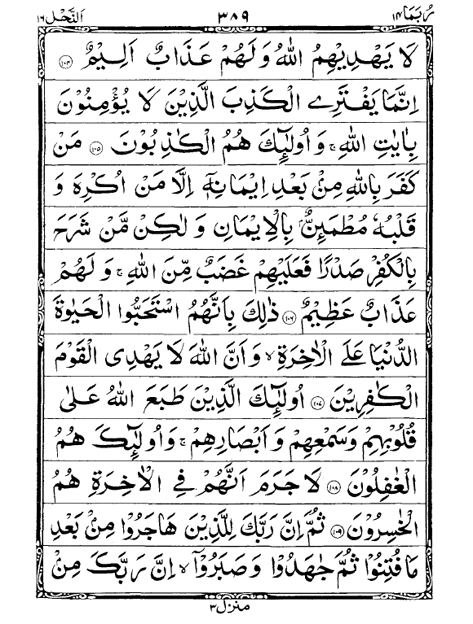 رُبَمَا ١٤
٣٨٩
اَلنَّحْل ١٦
لَا يَهْدِيْهِمُ اللّٰهُ وَلَهُمْ عَذَابٌ اَلِيْمٌ ﴿١٠٤﴾
اِنَّمَا يَفْتَرِے الْكَذِبَ الَّذِيْنَ لَا يُؤْمِنُوْنَ
بِاٰيٰتِ اللّٰهِ ۚ وَاُولٰٓئِكَ هُمُ الْكٰذِبُوْنَ ﴿١٠٥﴾ مَنْ
كَفَرَ بِاللّٰهِ مِنْۢ بَعْدِ اِيْمَانِهٖٓ اِلَّا مَنْ اُكْرِهَ وَ
قَلْبُهٗ مُطْمَئِنٌّۢ بِالْاِيْمَانِ وَلٰكِنْ مَّنْ شَرَحَ
بِالْكُفْرِ صَدْرًا فَعَلَيْهِمْ غَضَبٌ مِّنَ اللّٰهِ ۚ وَلَهُمْ
عَذَابٌ عَظِيْمٌ ﴿١٠٦﴾ ذٰلِكَ بِاَنَّهُمُ اسْتَحَبُّوا الْحَيٰوةَ
الدُّنْيَا عَلَى الْاٰخِرَةِ ۙ وَاَنَّ اللّٰهَ لَا يَهْدِى الْقَوْمَ
الْكٰفِرِيْنَ ﴿١٠٧﴾ اُولٰٓئِكَ الَّذِيْنَ طَبَعَ اللّٰهُ عَلٰى
قُلُوْبِهِمْ وَسَمْعِهِمْ وَاَبْصَارِهِمْ ۚ وَاُولٰٓئِكَ هُمُ
الْغٰفِلُوْنَ ﴿١٠٨﴾ لَا جَرَمَ اَنَّهُمْ فِى الْاٰخِرَةِ هُمُ
الْخٰسِرُوْنَ ﴿١٠٩﴾ ثُمَّ اِنَّ رَبَّكَ لِلَّذِيْنَ هَاجَرُوْا مِنْۢ بَعْدِ
مَا فُتِنُوْا ثُمَّ جٰهَدُوْا وَصَبَرُوْٓا ۙ اِنَّ رَبَّكَ مِنْۢ
منزل ٣